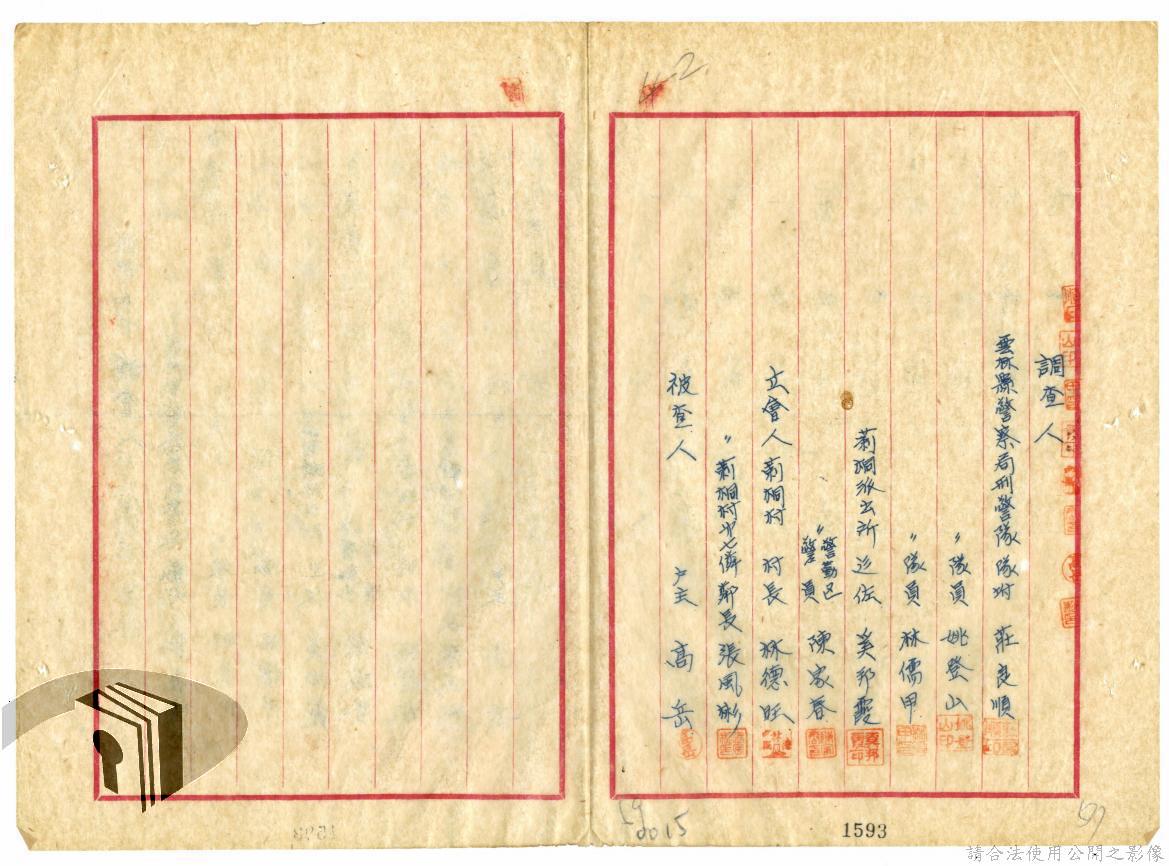 調查人
雲林縣警察局刑警隊隊附 莊良順
〃隊員 姚登山
〃隊員 林儒甲
莿桐派出所巡佐 奚邦霞
〃警勤區警員 陳家春
立會人 莿桐村 村長 林德旺
〃莿桐村第七鄰鄰長 張風彬
被查人 戶主 高岳
4-2
2015
1593
請合法使用公開之影像